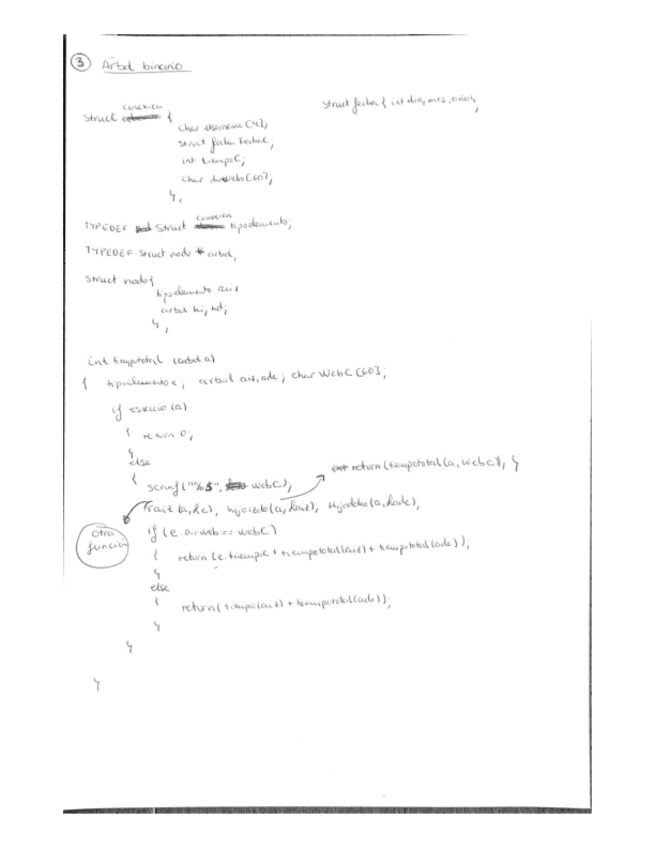 3 Árbol binario
struct fecha { int dia, mes, anio};
conexion
struct {
char username[4];
struct fecha FechaC;
int tiempoC;
char dirweb[60];
};
conexion
TYPEDEF struct tipoelemento;
TYPEDEF struct nodo * arbol;
struct nodo{
tipoelemento raiz;
arbol hi, hd;
};
int tiempototal (arbol a)
{ tipoelemento e; arbol aiz, ade; char WebC [60];
if esvacio (a)
{ return 0;
}
else
return (tiempototal (a, WebC)); }
{ scanf("%s", webC);
raiz (a, &e), hijoizdo(a, &aiz), Hijodcho(a, &ade);
otra
función
if (e.Dirweb == webC)
{ return (e.tiempoC + tiempototal(aiz) + tiempototal(ade));
}
else
{ return( tiempo(aiz) + tiempototal(ade));
}
}
}